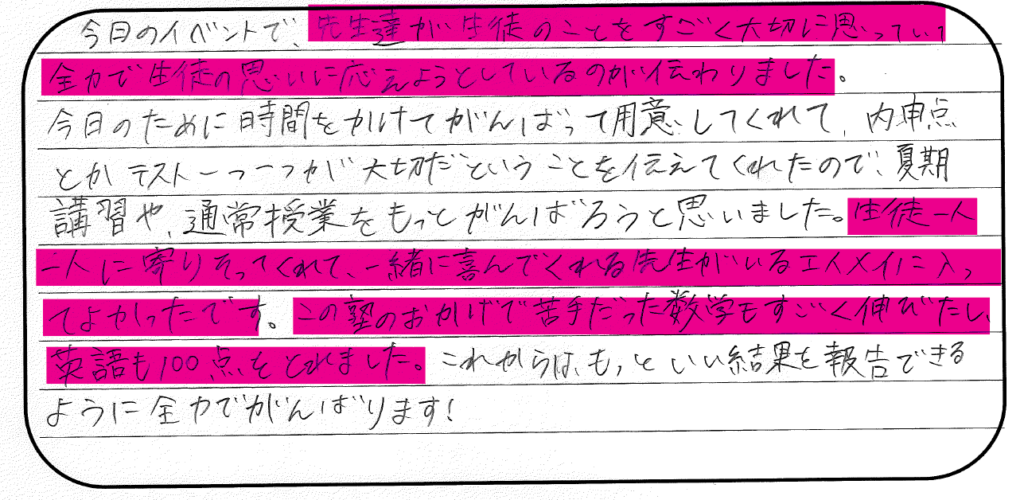 今日のイベントで、先生達が生徒のことをすごく大切に思っていて
全力で生徒の思いに応えようとしているのが伝わりました。
今日のために時間をかけてがんばって用意してくれて、内申点
とかテスト一つ一つが大切だということを伝えてくれたので、夏期
講習や、通常授業をもっとがんばろうと思いました。生徒一人
一人に寄りそってくれて、一緒に喜んでくれる先生がいるエイメイに入っ
てよかったです。この塾のおかげで苦手だった数学もすごく伸びたし、
英語も100点をとれました。これからは、もっといい結果を報告できる
ように全力でがんばります!